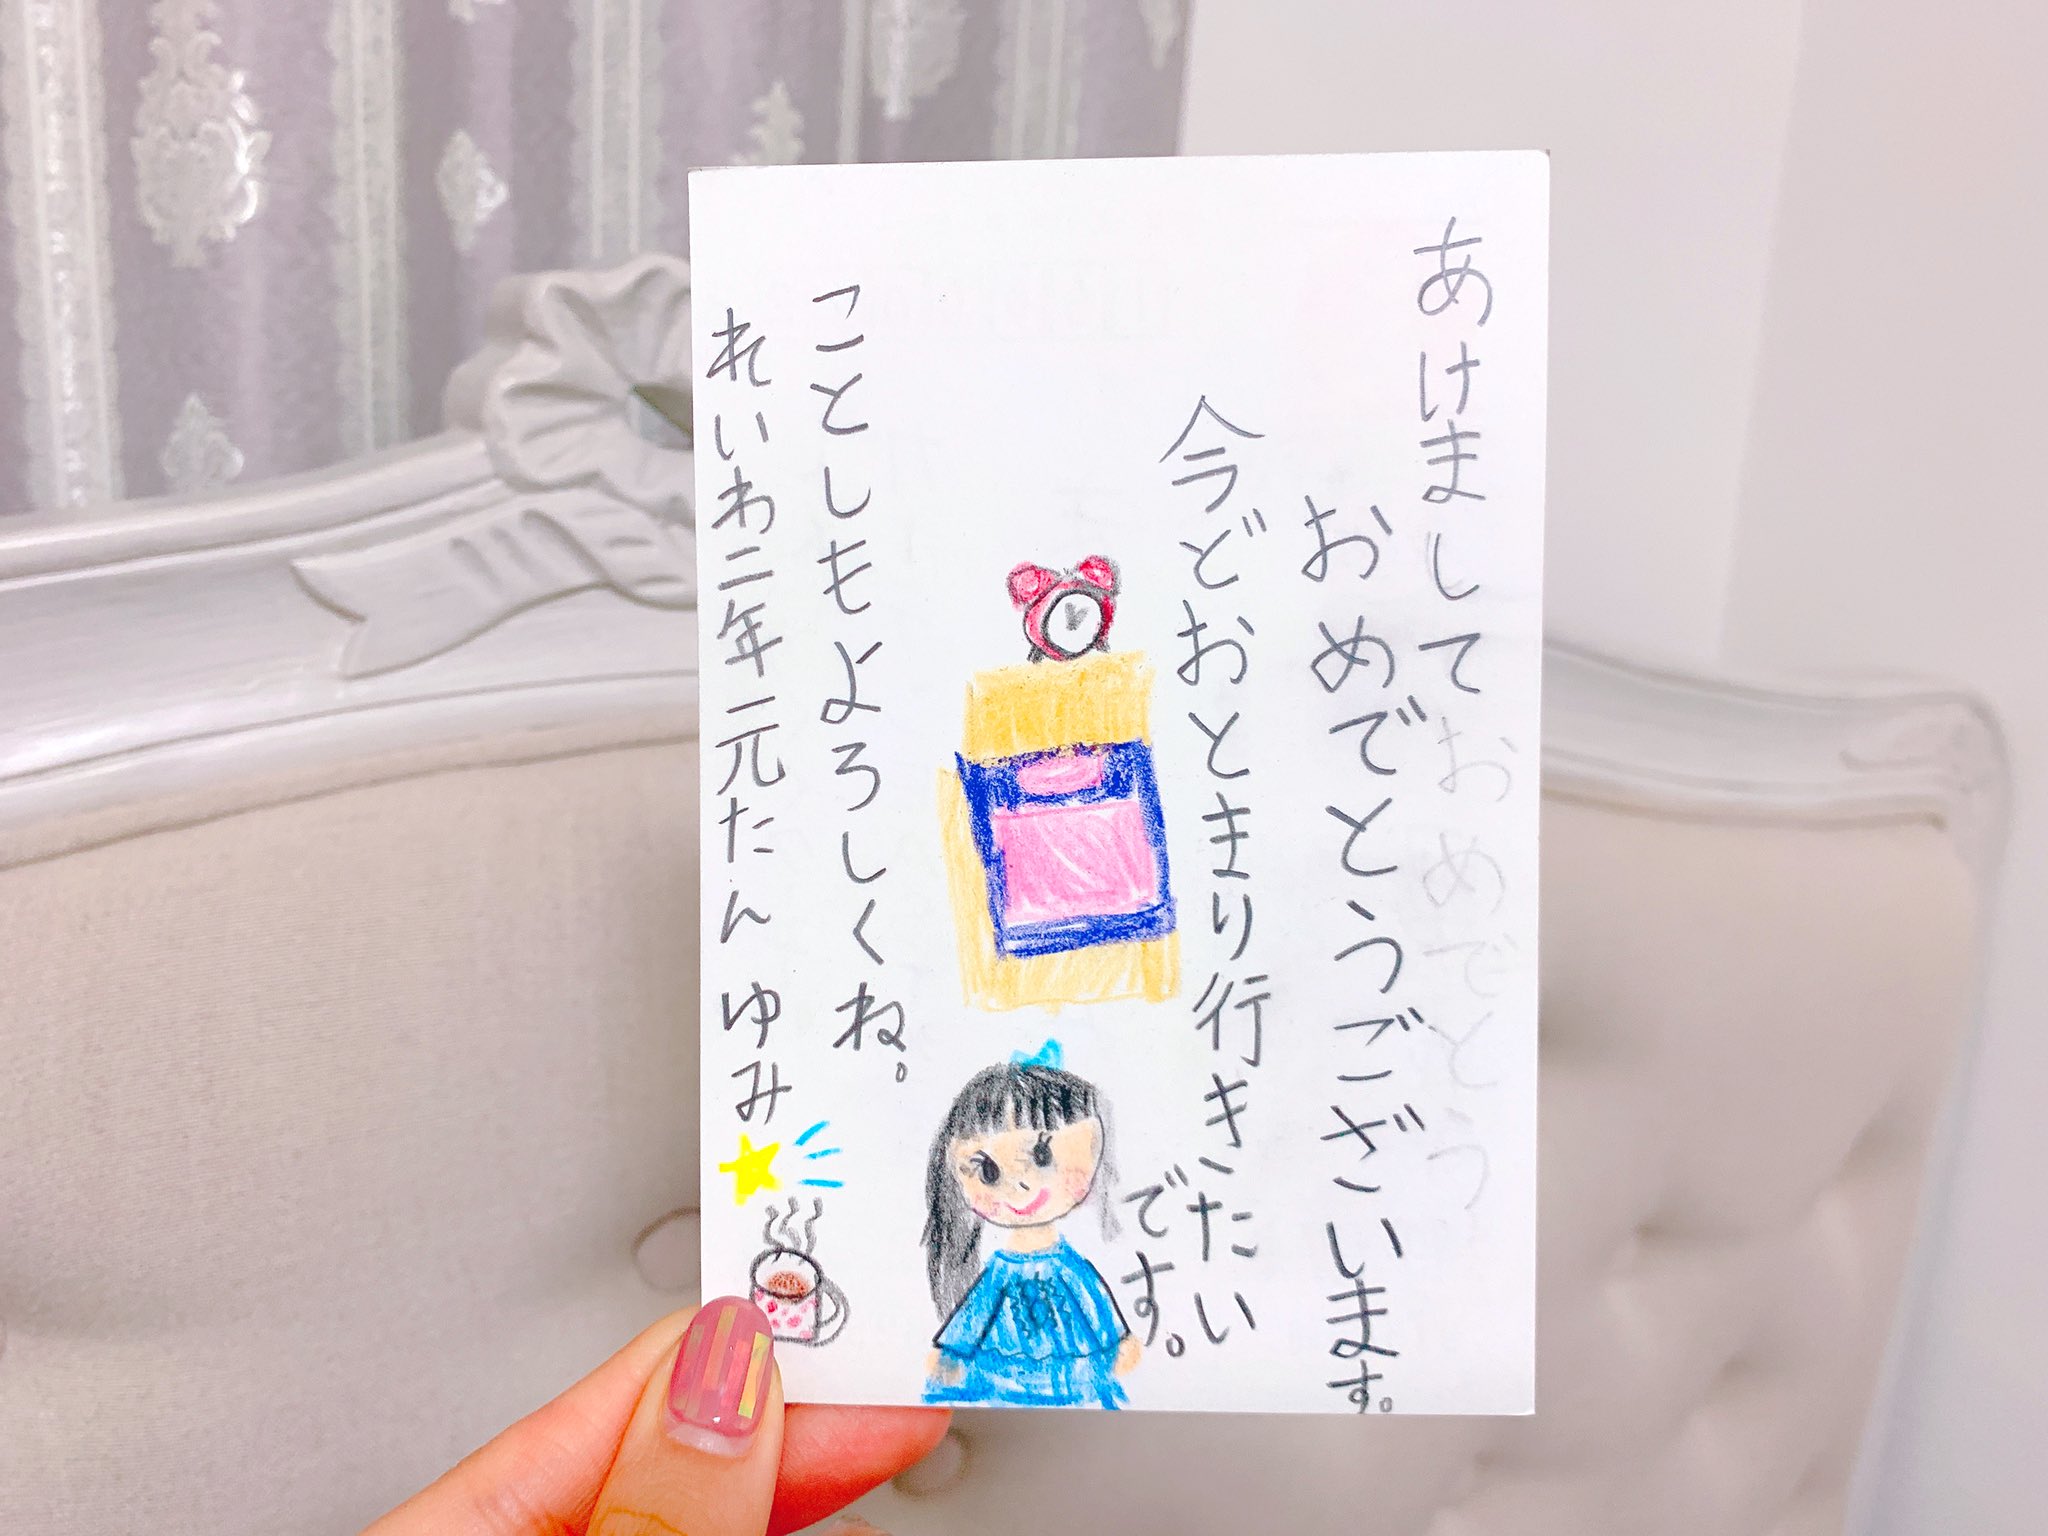 あけまして
おめでとう
おめでとうございます。
今どおとまり行きたい
です。
ことしもよろしくね。
れいわ二年元たん ゆみ